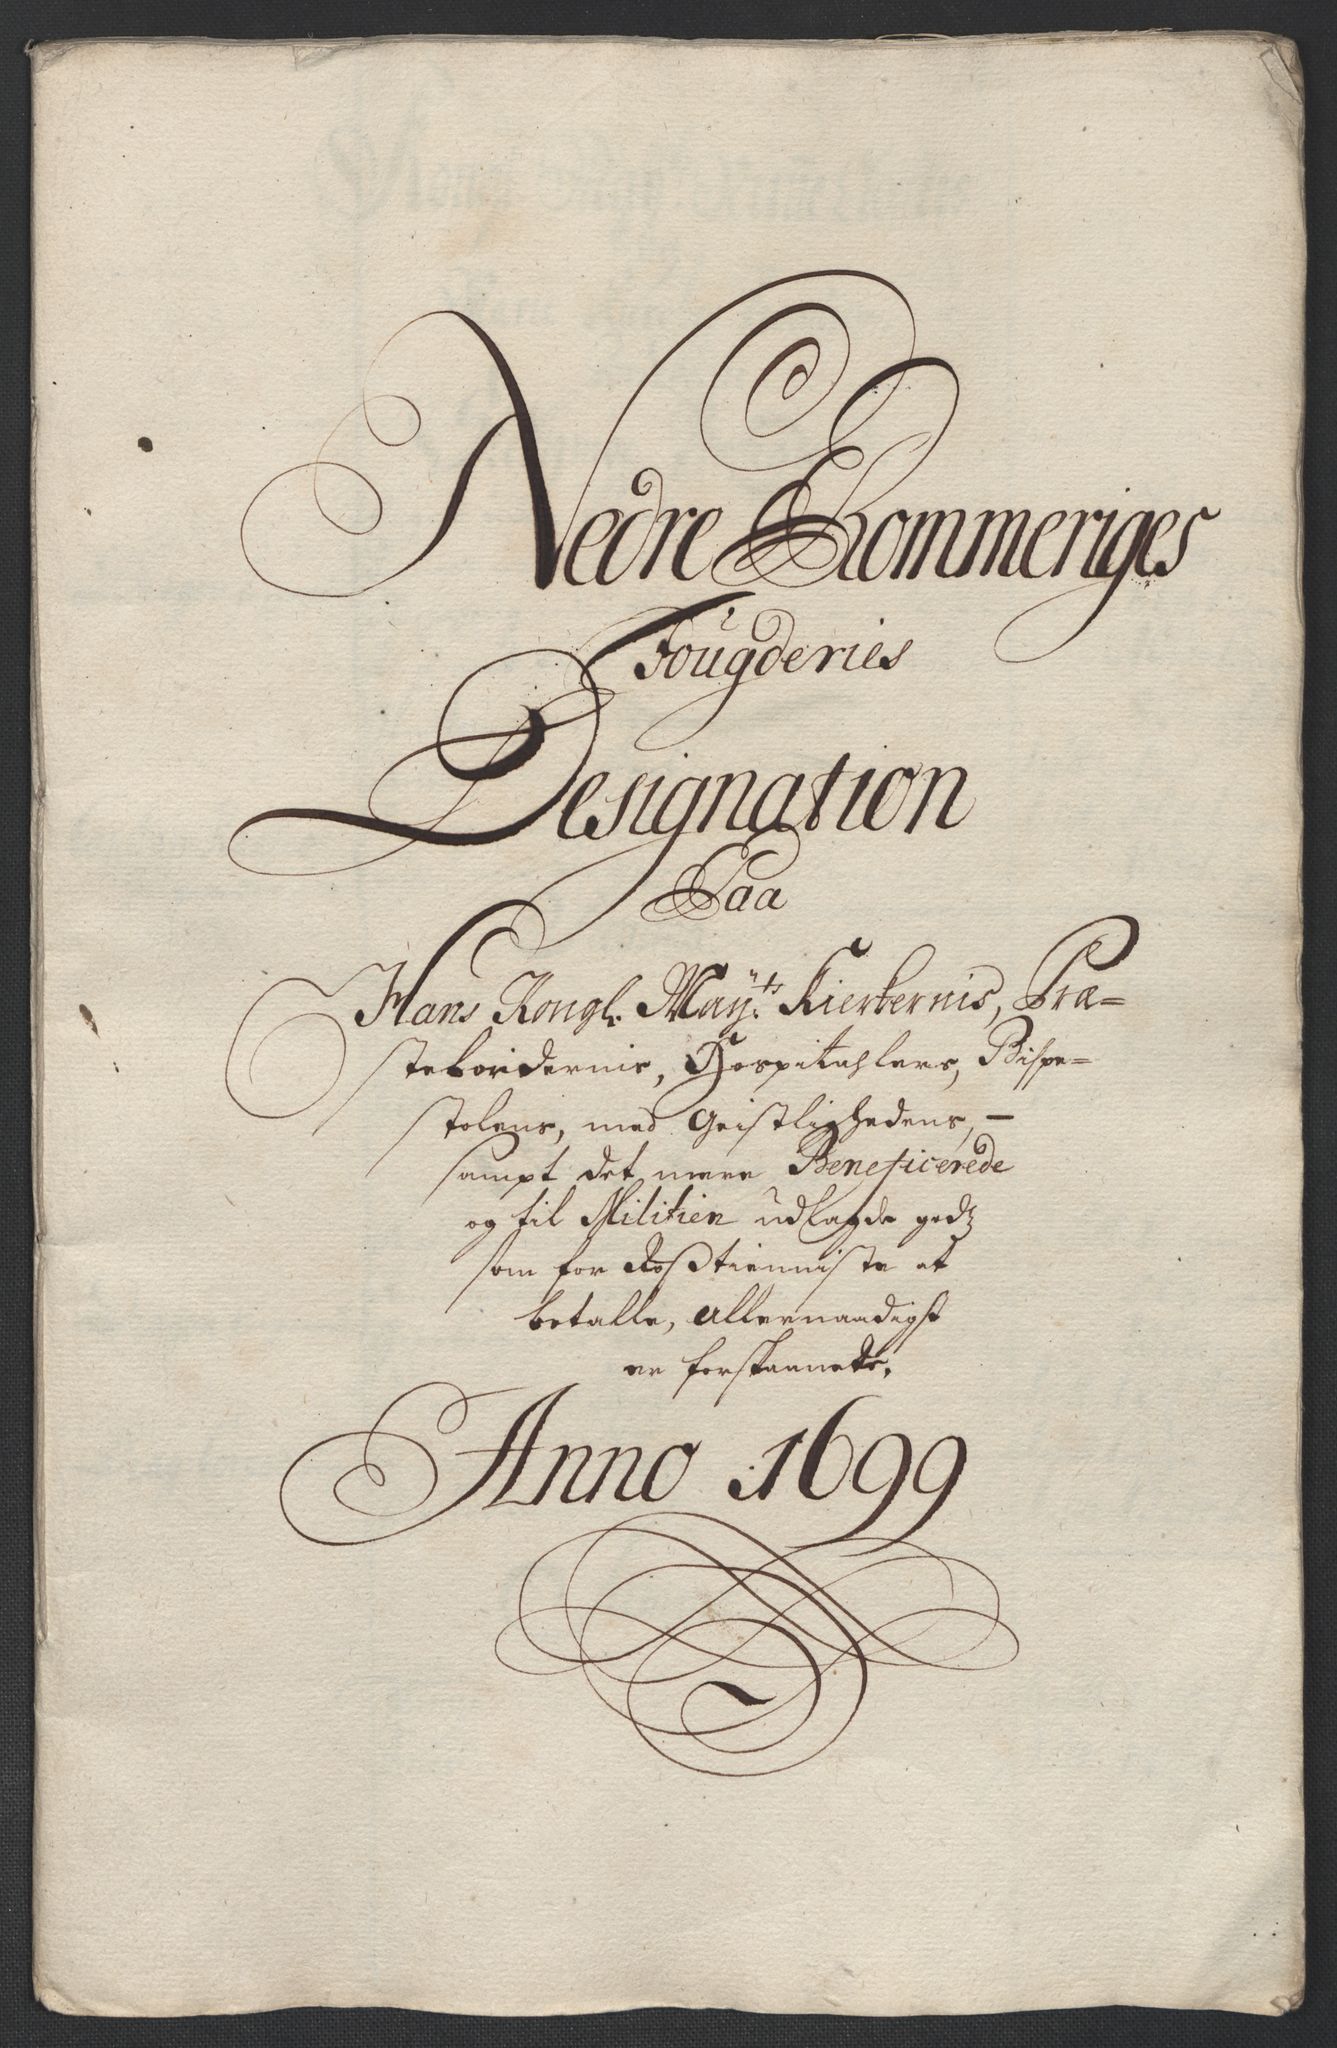 Nedre Rommeriges
Fougderies
Designation
Paa
Hans Kongl. May:ts Kierkernis, Præ=
stebordernis, Hospitahlers, Bispe=
stolens, med Geistlighedens, —
sampt det mere Beneficerede
og til Militien udlagde godtz
som for Roßtienniste at
betalle, allernaadigst
er forskaanede.
Anno 1699